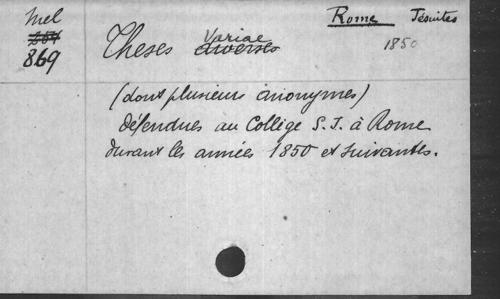 Mel Rome Jésuites
869 Theses Variae diverses 1850
(dont plusieurs anonymes)
défendues au Collège S.J. à Rome
durant les années 1850 et suivantes.